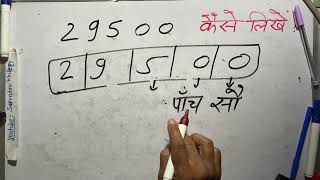 29500 कैसे लिखें
2 9 5 0 0
पाँच सौ